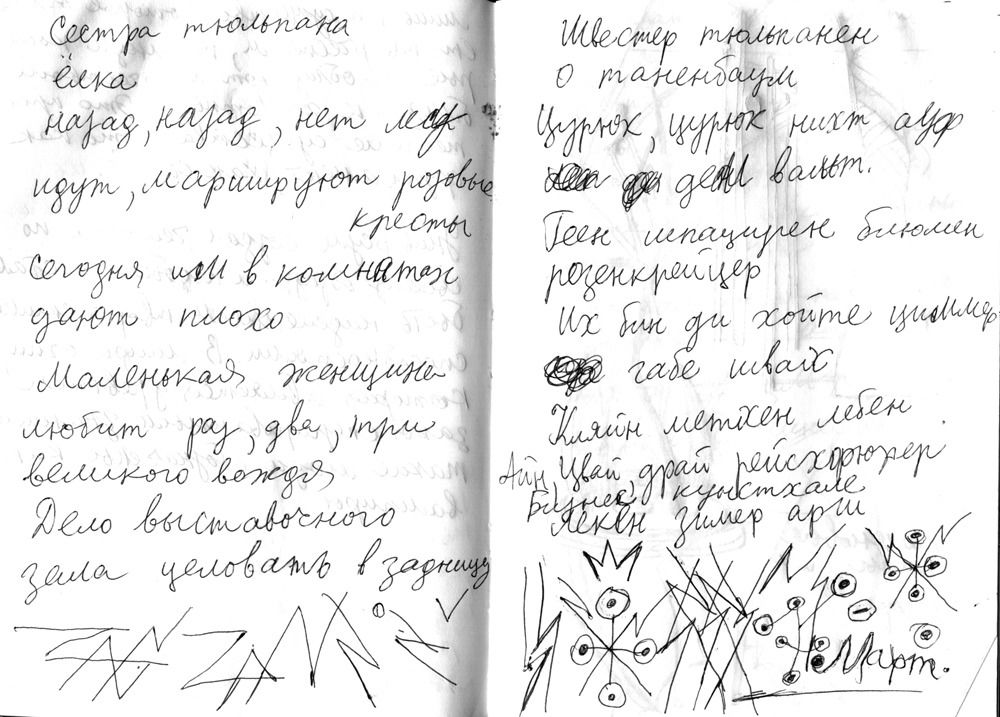 Сестра тюльпана
ёлка
назад, назад, нет
идут, маршируют розовые
кресты
Сегодня им в комнатах
дают плохо
Маленькая женщина
любит раз, два, три
великого вождя
Дело выставочного
зала целовать в задницу
Швестер тюльпанен
О таненбаум
Цурюк, цурюк нихт ауф
ден вальт.
Геен шпацирен блюмен
розенкрейцер
Их бин ди хойте циммер
габе швайх
Кляйн метхен лебен
Айн, Цвай, драй рейсхфюрер
Бизнес кунстхале
Лекен зимер арш
Март.